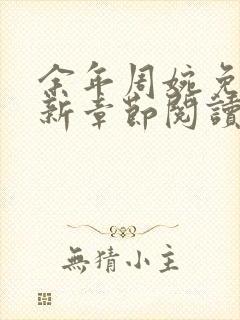 余年周婉免
新章節閱讀
無猜小主